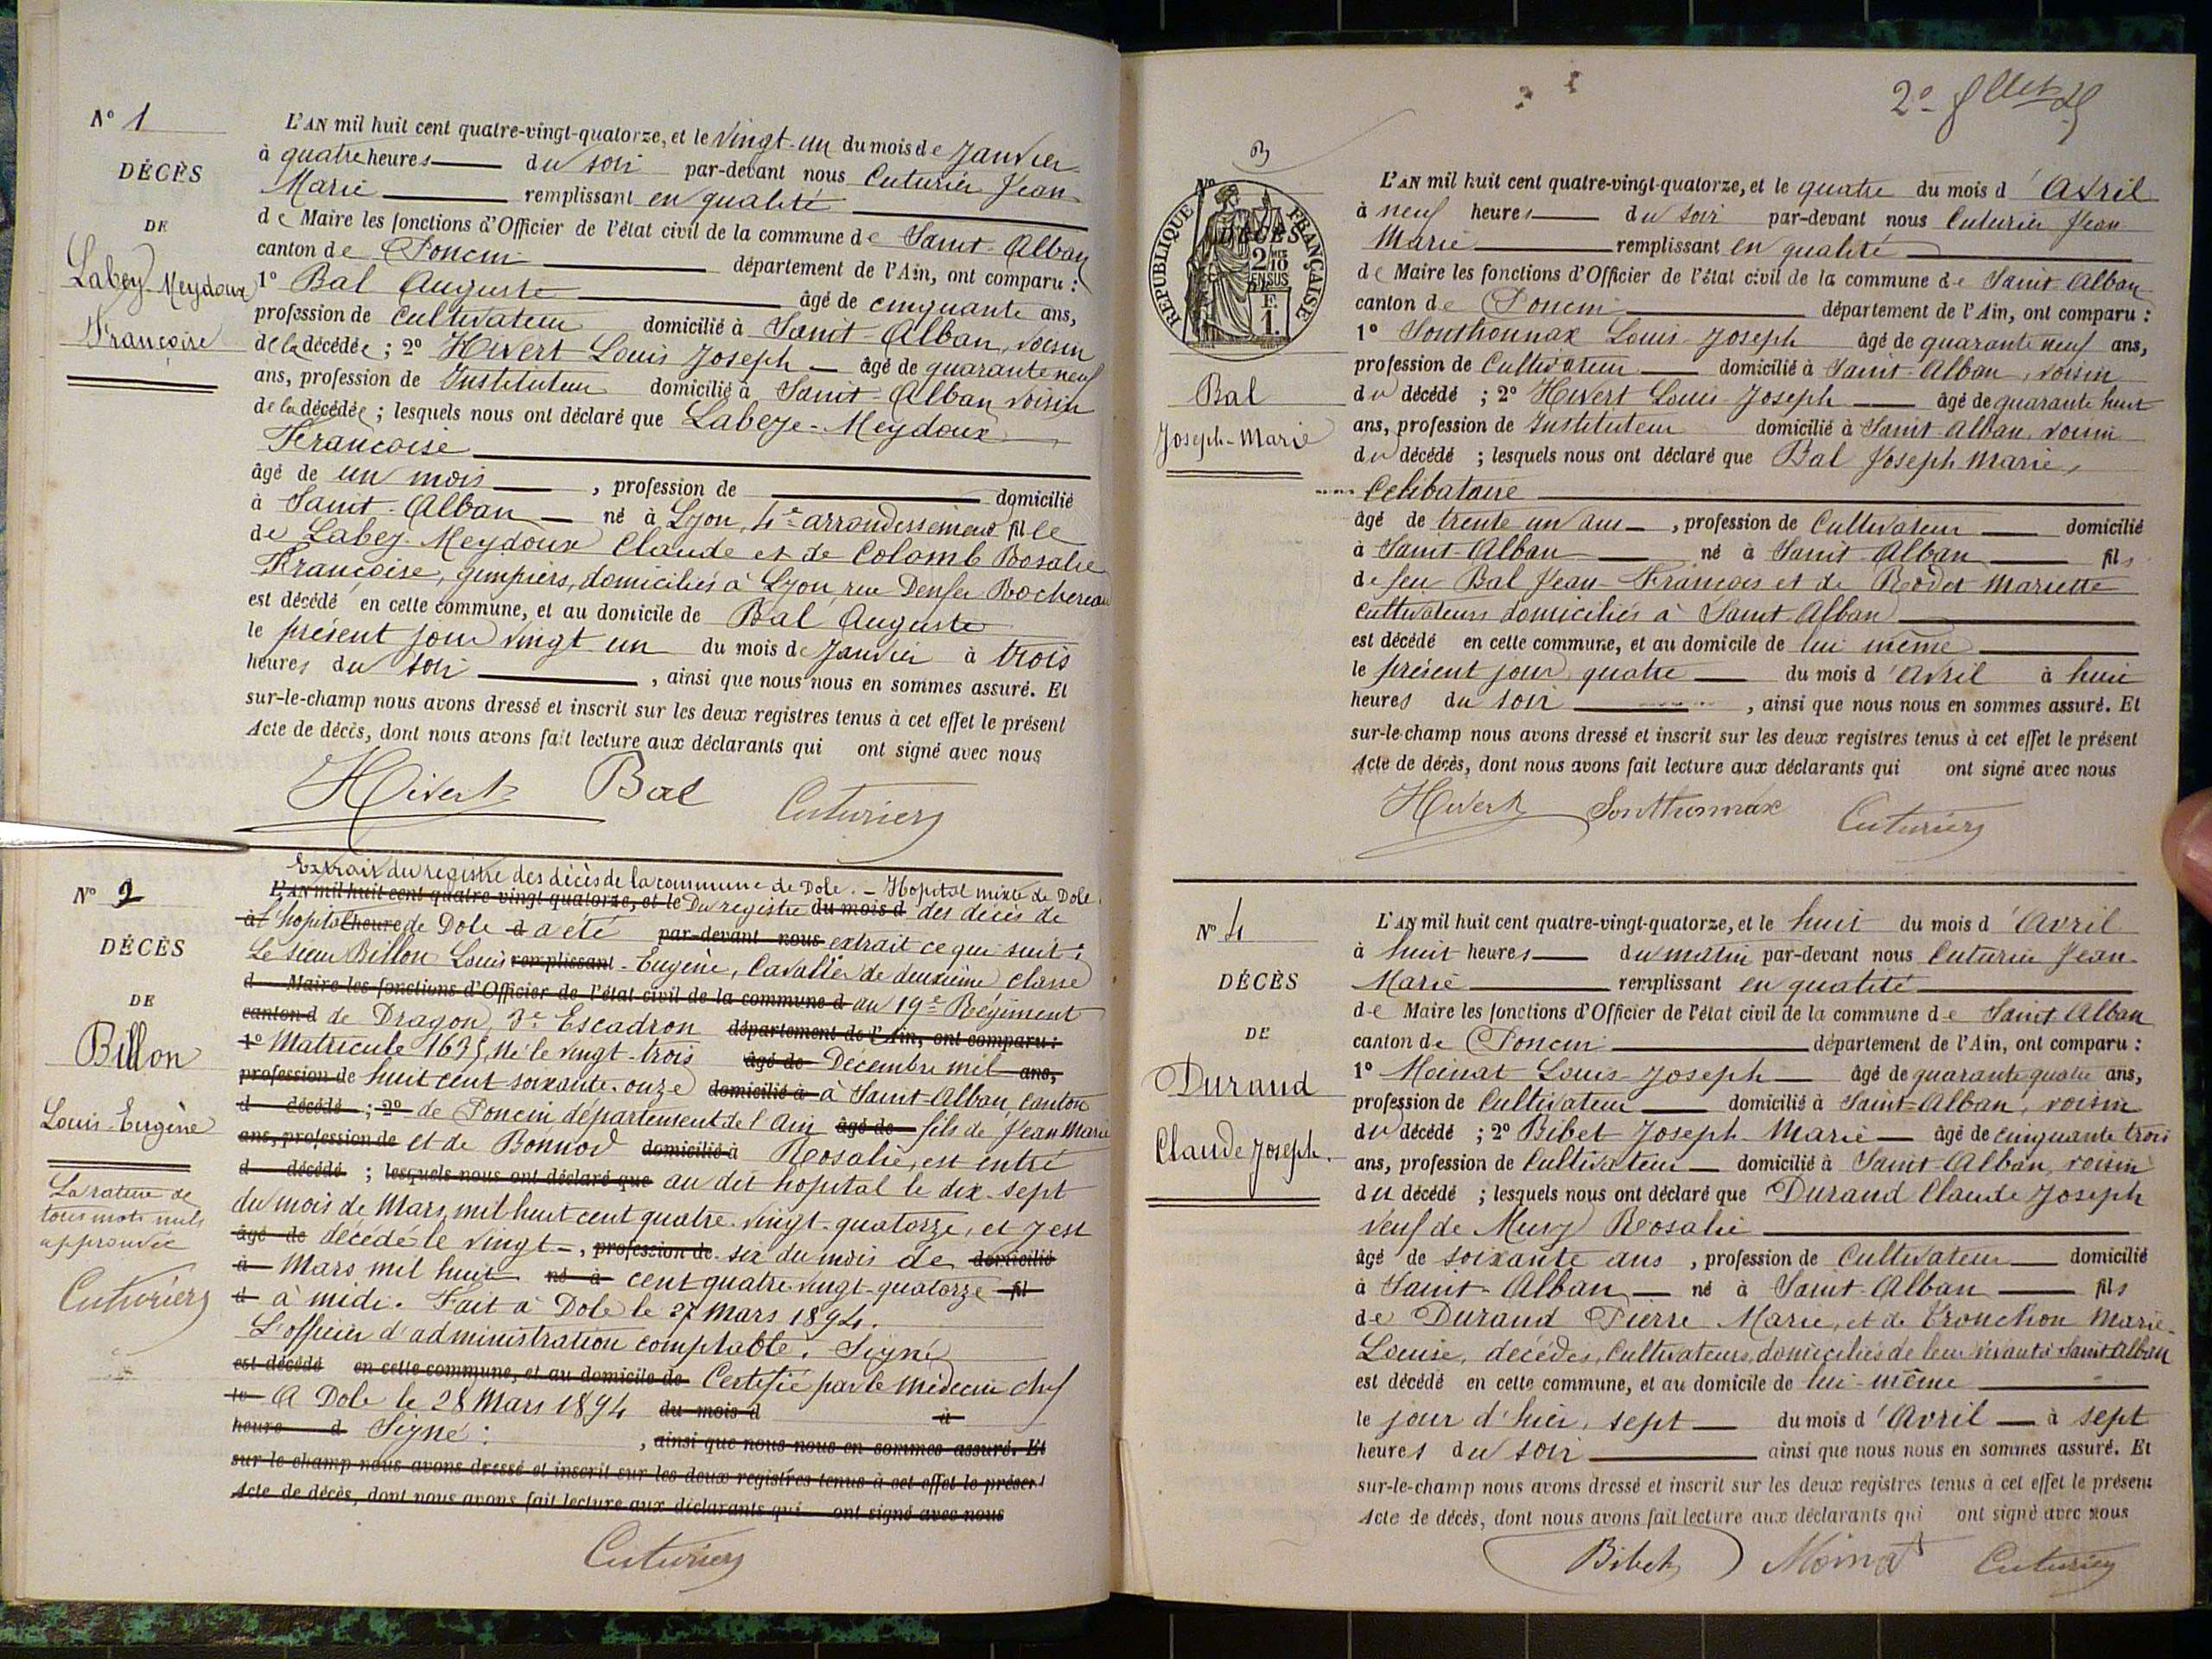 N° 1
DÉCÈS
DE
Labey-Meydoux
Françoise
L'AN mil huit cent quatre-vingt-quatorze, et le vingt-un du mois de Janvier
à quatre heures du soir par-devant nous Cuturier Jean
Marie remplissant en qualité
de Maire les fonctions d'Officier de l'état civil de la commune de Saint-Alban
canton de Poncin département de l'Ain, ont comparu :
1° Bal Auguste âgé de cinquante ans,
profession de Cultivateur domicilié à Saint-Alban, voisin
de la décédée ; 2° Hivert Louis Joseph âgé de quarante neuf
ans, profession de Instituteur domicilié à Saint-Alban voisin
de la décédée ; lesquels nous ont déclaré que Labeye-Meydoux
Françoise
âgé de un mois , profession de domicilié
à Saint-Alban né à Lyon, 4e arrondissement fille
de Labey-Meydoux Claude et de Colomb Rosalie
Françoise, gimpiers, domiciliés à Lyon, rue Denfer Rochereau
est décédé en cette commune, et au domicile de Bal Auguste
le présent jour vingt un du mois de Janvier à trois
heures du soir , ainsi que nous nous en sommes assuré. Et
sur-le-champ nous avons dressé et inscrit sur les deux registres tenus à cet effet le présent
Acte de décès, dont nous avons fait lecture aux déclarants qui ont signé avec nous
Hivert Bal Cuturier
N° 2
DÉCÈS
DE
Billon
Louis-Eugène
La rature de
tous mots nuls
approuvée
Cuturier
Extrait du registre des décès de la commune de Dole. - Hopital mixte de Dole.
L'AN mil huit cent quatre-vingt-quatorze, et le Du registre du mois d des décès de
à l'hopital heure de Dole d a été par-devant nous extrait ce qui suit :
Le sieur Billon Louis remplissant -Eugène, Cavalier de deuxième classe
d Maire les fonctions d'Officier de l'état civil de la commune d au 19e Régiment
canton d de Dragon, 3e Escadron département de l'Ain, ont comparu :
1° Matricule 1635, Né le vingt-trois âgé de Décembre mil ans,
profession de huit cent soixante-onze domicilié à à Saint-Alban, canton
d décédé ; 2° de Poncin, département de l'Ain âgé de fils de Jean Marie
ans, profession de et de Bonnod domicilié à Rosalie, est entré
d décédé ; lesquels nous ont déclaré que au dit hopital le dix-sept
du mois de Mars mil huit cent quatre-vingt-quatorze, et y est
âgé de décédé le vingt-, profession de six du mois de domicilié
à Mars mil huit né à cent quatre-vingt-quatorze fil
d à midi. Fait à Dole le 27 Mars 1894.
L'officier d'administration comptable. Signé
est décédé en cette commune, et au domicile de Certifié par le Médecin chef
le A Dole le 28 Mars 1894 du mois d à
heure d Signé : , ainsi que nous nous en sommes assuré. Et
sur-le-champ nous avons dressé et inscrit sur les deux registres tenus à cet effet le présent
Acte de décès, dont nous avons fait lecture aux déclarants qui ont signé avec nous
Cuturier
2e
3
N°
DÉCÈS
RÉPUBLIQUE FRANÇAISE
2/10
EN SUS
F.
1.
Bal
Joseph-Marie
L'AN mil huit cent quatre-vingt-quatorze, et le quatre du mois d'Avril
à neuf heures du soir par-devant nous Cuturier Jean
Marie remplissant en qualité
de Maire les fonctions d'Officier de l'état civil de la commune de Saint-Alban
canton de Poncin département de l'Ain, ont comparu :
1° Sonthonnax Louis-Joseph âgé de quarante neuf ans,
profession de Cultivateur domicilié à Saint-Alban, voisin
du décédé ; 2° Hivert Louis-Joseph âgé de quarante huit
ans, profession de Instituteur domicilié à Saint-Alban, voisin
du décédé ; lesquels nous ont déclaré que Bal Joseph Marie,
Célibataire
âgé de trente un ans , profession de Cultivateur domicilié
à Saint-Alban né à Saint-Alban fils
de feu Bal Jean-François et de Rodet Mariette
cultivateurs domiciliés à Saint-Alban
est décédé en cette commune, et au domicile de lui même
le présent jour, quatre du mois d'Avril à huit
heures du soir , ainsi que nous nous en sommes assuré. Et
sur-le-champ nous avons dressé et inscrit sur les deux registres tenus à cet effet le présent
Acte de décès, dont nous avons fait lecture aux déclarants qui ont signé avec nous
Hivert Sonthonnax Cuturier
N° 4
DÉCÈS
DE
Durand
Claude Joseph.
L'AN mil huit cent quatre-vingt-quatorze, et le huit du mois d'Avril
à huit heures du matin par-devant nous Cuturier Jean
Marie remplissant en qualité
de Maire les fonctions d'Officier de l'état civil de la commune de Saint-Alban
canton de Poncin département de l'Ain, ont comparu :
1° Moinat Louis-Joseph âgé de quarante quatre ans,
profession de Cultivateur domicilié à Saint-Alban, voisin
du décédé ; 2° Bibet Joseph-Marie âgé de cinquante trois
ans, profession de Cultivateur domicilié à Saint-Alban, voisin
du décédé ; lesquels nous ont déclaré que Durand Claude Joseph
veuf de Musy Rosalie
âgé de soixante ans , profession de Cultivateur domicilié
à Saint-Alban né à Saint-Alban fils
de Durand Pierre Marie, et de Tronchon Marie-
Louise, décédés, Cultivateurs, domiciliés de leur vivant à Saint-Alban
est décédé en cette commune, et au domicile de lui-même
le jour d'hier, sept du mois d'Avril à sept
heures du soir ainsi que nous nous en sommes assuré. Et
sur-le-champ nous avons dressé et inscrit sur les deux registres tenus à cet effet le présent
Acte de décès, dont nous avons fait lecture aux déclarants qui ont signé avec nous
Bibet Moinat Cuturier